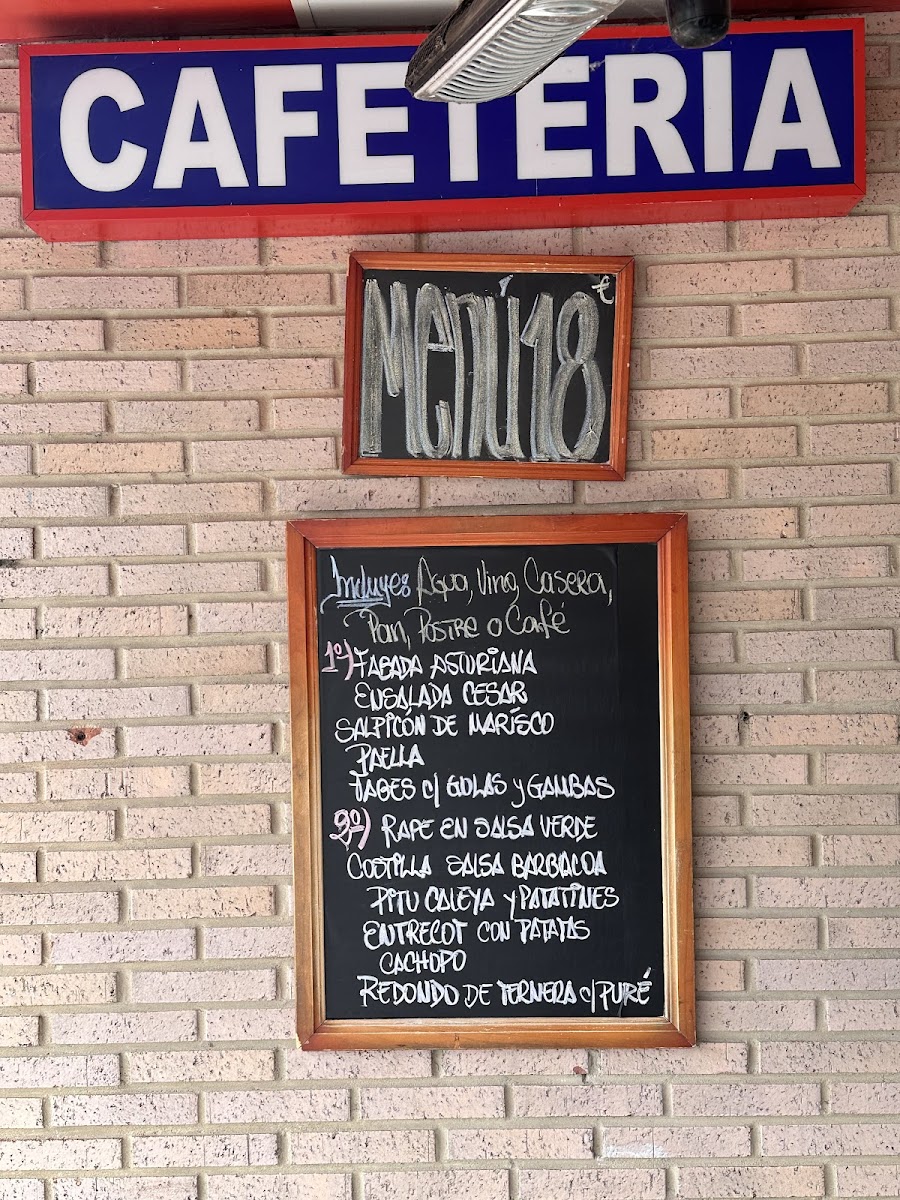 CAFETERIA
Menú 18 €
Incluye: Agua, Vino, Casera,
Pan, Postre o Café
1º) FABADA ASTURIANA
ENSALADA CESAR
SALPICÓN DE MARÍSCO
PAELLA
FABES c/ GULAS y GAMBAS
2º) RAPE EN SALSA VERDE
COSTILLA SALSA BARBACOA
PITU CALEYA y PATATINES
ENTRECOT CON PATATAS
CACHOPO
REDONDO DE TERNERA c/ PURÉ